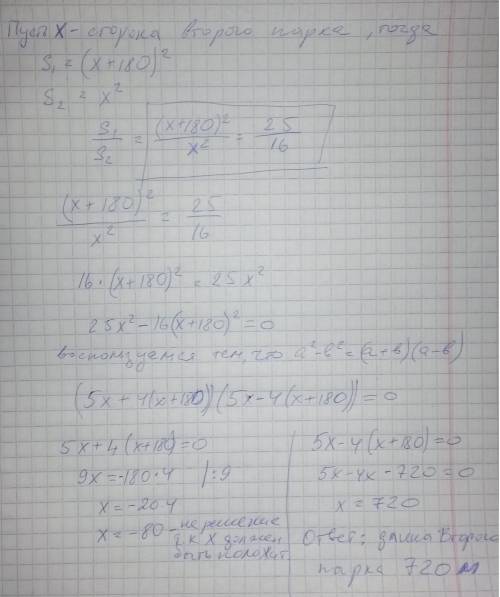 Пусть x - сторона второго парка, тогда
S₁ = (x+180)²
S₂ = x²
S₁/S₂ = (x+180)²/x² = 25/16
(x+180)²/x² = 25/16
16·(x+180)² = 25x²
25x² - 16(x+180)² = 0
воспользуемся тем, что a²-b²=(a+b)(a-b)
(5x + 4(x+180))(5x - 4(x+180)) = 0
5x+4(x+180)=0
9x=-180·4 |:9
x=-20·4
x=-80 - не решение
т.к x должен
быть положит
5x-4(x+180)=0
5x-4x-720=0
x=720
Ответ: длина второго
парка 720 м